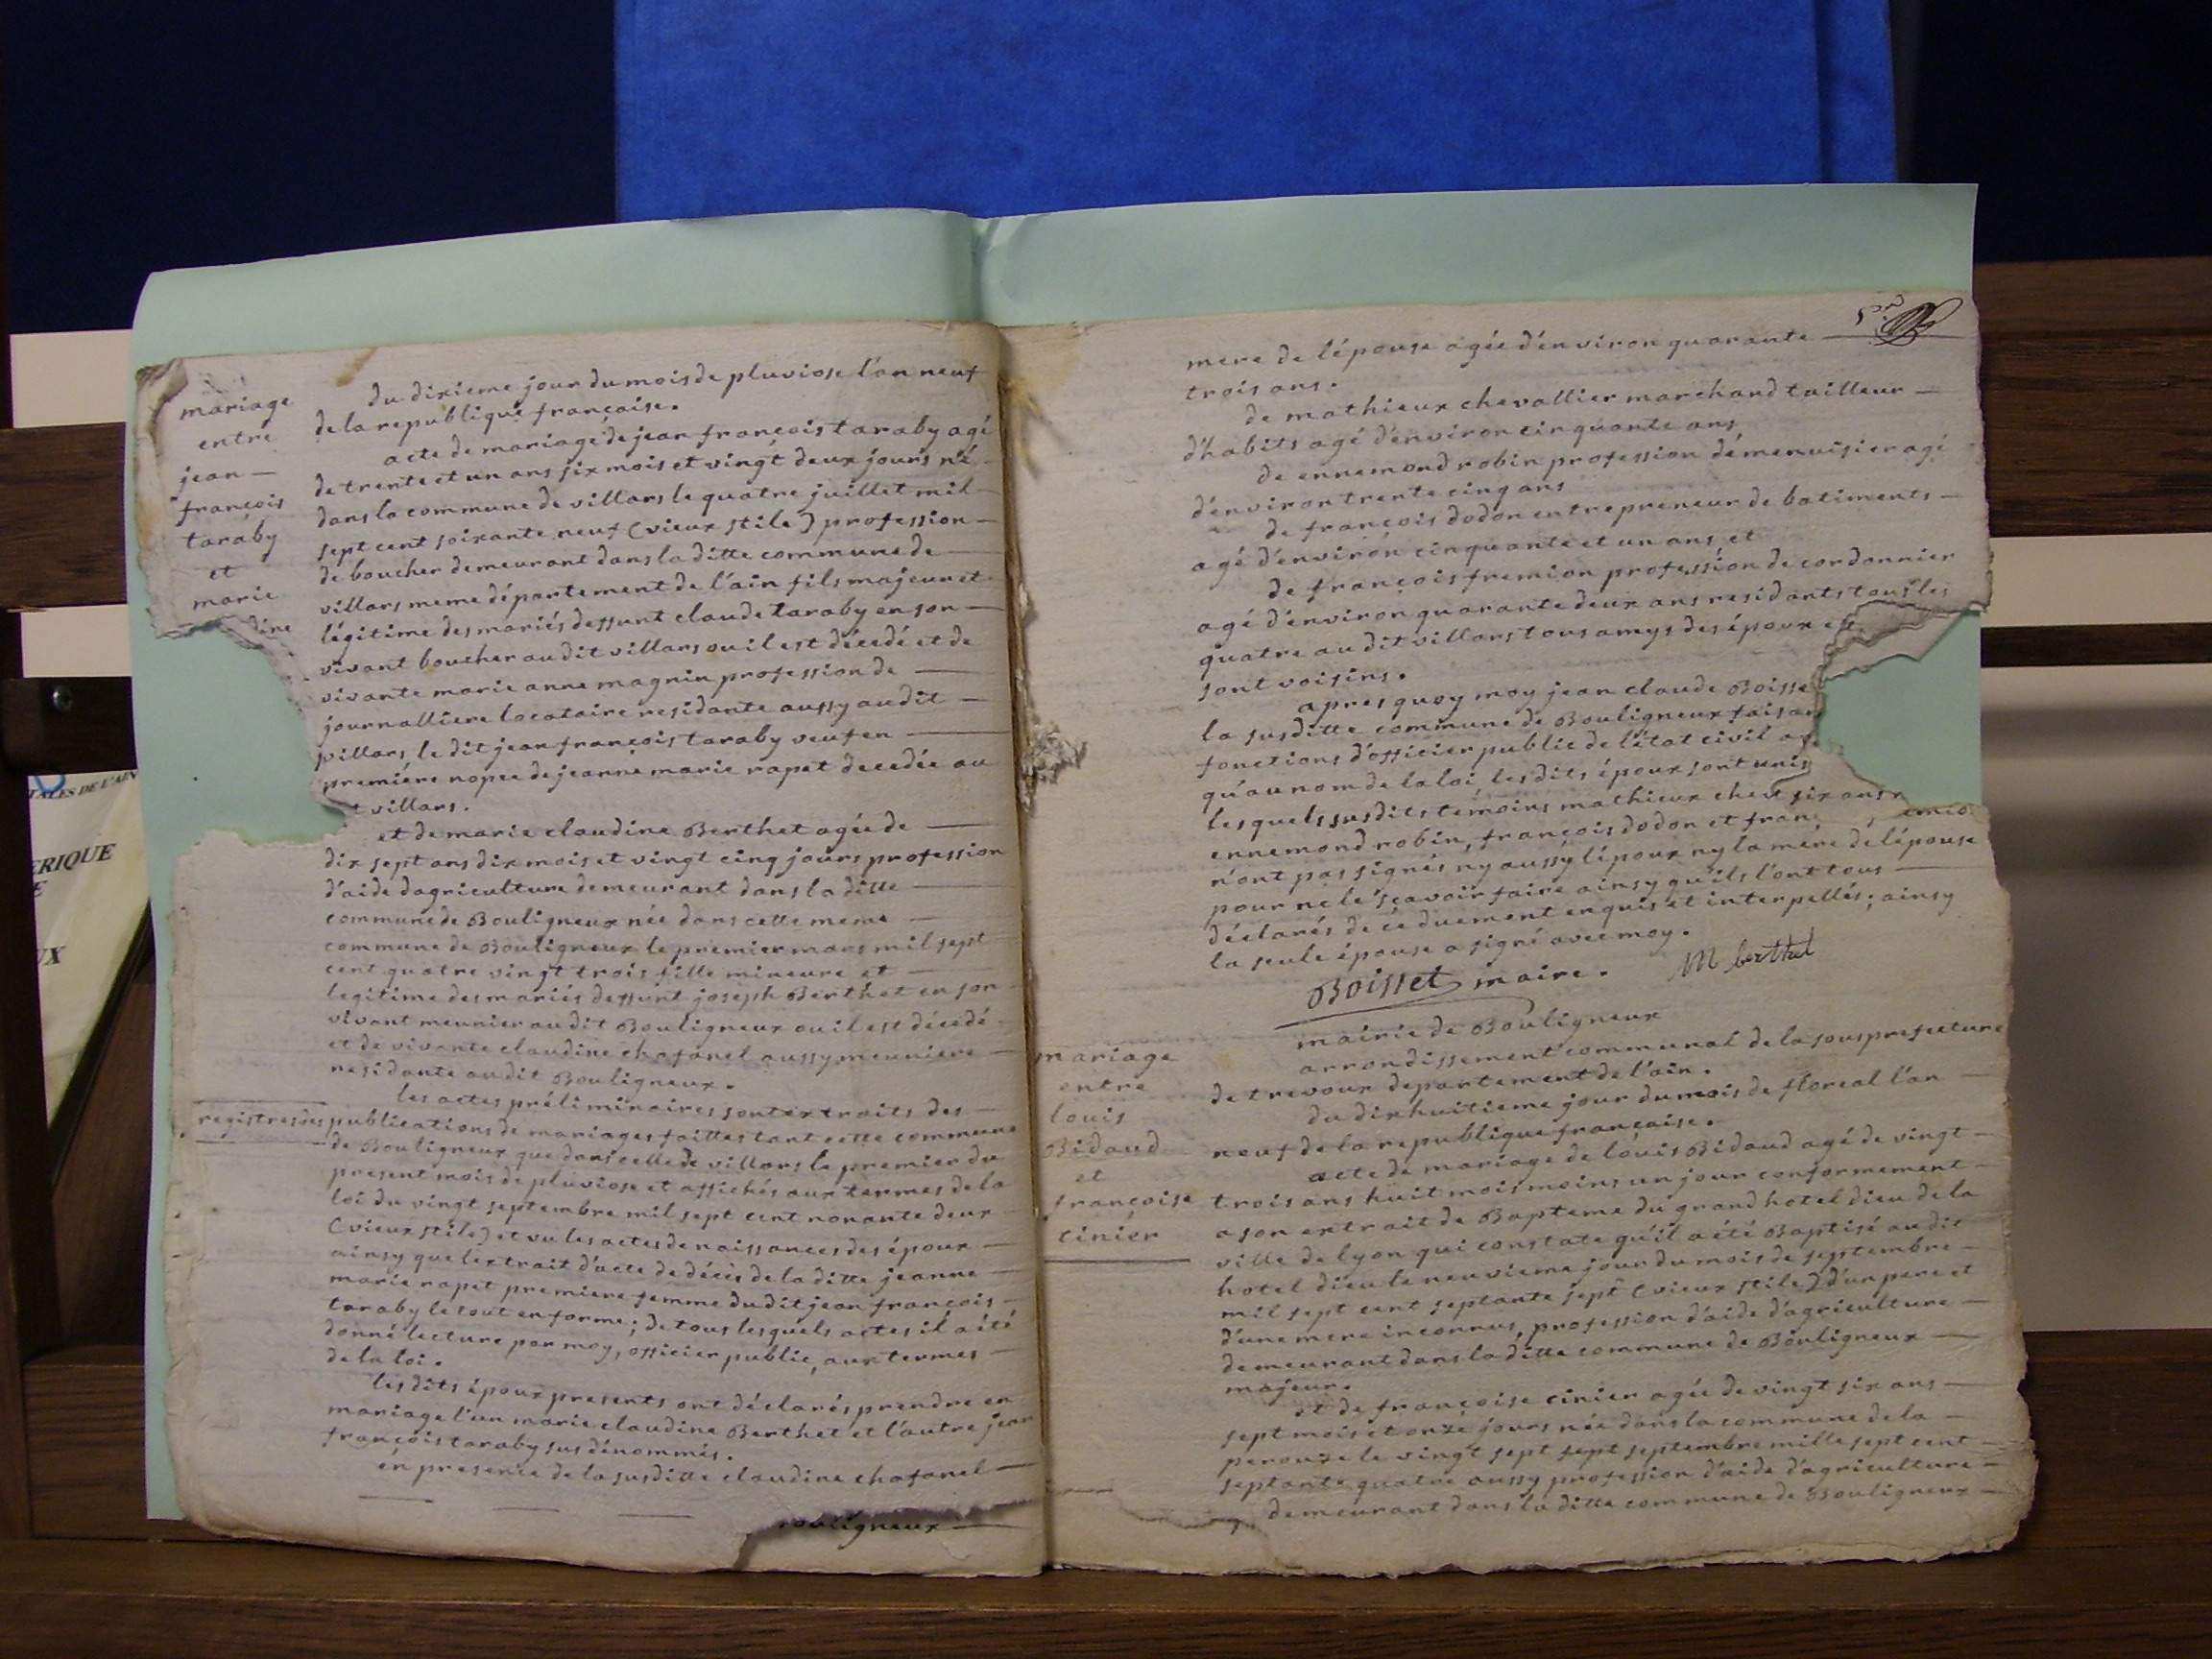 mariage
entre
jean —
françois
taraby
et
marie
dine
du dixieme jour du mois de pluviose l'an neuf
de la republique française.
acte de mariage de jean françois taraby agé
de trente et un ans six mois et vingt deux jours né
dans la commune de villars le quatre juillet mil
sept cent soixante neuf (vieux stile) profession —
de boucher demeurant dans la ditte commune de —
villars meme département de l'ain fils majeur et
légitime des mariés deffunt claude taraby en son —
vivant boucher au dit villars ou il est décedé et de
vivante marie anne magnin profession de —
journalliere locataire residante aussy au dit —
villars, le dit jean françois taraby veuf en —
premiére nopce de jeanne marie rapet decedée au
t villars.
et de marie claudine Berthet agée de —
dix sept ans dix mois et vingt cinq jours profession
d'aide d'agriculture demeurant dans la ditte —
commune de Bouligneux née dans cette meme —
commune de Bouligneux le premier mars mil sept
cent quatre vingt trois fille mineure et —
legitime des mariés deffunt joseph Berthet en son
vivant meunier au dit Bouligneux ou il est décedé
et de vivante claudine chafanel aussy meuniere —
residante au dit Bouligneux.
les actes préliminaires sont extraits des —
registres des publications de mariages faittes tant cette commune
de Bouligneux que dans celle de villars le premier du
present mois de pluviose et affichés aux termes de la
loi du vingt septembre mil sept cent nonante deux
(vieux stile) et vu les actes de naissances des époux —
ainsy que l'extrait d'acte de décès de la ditte jeanne —
marie rapet premiere femme du dit jean françois —
taraby le tout en forme ; de tous lesquels actes il a été
donné lecture par moy, officier public, aux termes —
de la loi.
les dits époux presents ont déclarés prendre en
mariage l'un marie claudine Berthet et l'autre jean
françois taraby sus dénommés.
en presence de la susditte claudine chafanel —
ouligneux —
mere de l'épouse agée d'environ quarante —
trois ans.
de mathieux chevallier marchand tailleur —
d'habits agé d'environ cinquante ans
de ennemond robin profession de menuisier agé
d'environ trente cinq ans
de françois dodon entrepreneur de batiments —
agé d'environ cinquante et un ans, et
de françois fremion profession de cordonnier
agé d'environ quarante deux ans residants tous les
quatre au dit villars tous amys des époux et
sont voisins.
apres quoy moy jean claude Boisse
la susditte commune de Bouligneux faisan
fonctions d'officier public de l'état civil ay
qu'au nom de la loi, les dits époux sont unis
les quels susdits temoins mathieux chev
ennemond robin, françois dodon et fran
n'ont pas signés ny aussy l'époux ny la mére de l'épouse
pour ne le sçavoir faire ainsy qu'ils l'ont tous —
déclarés de ce duement enquis et interpellés ; ainsy
la seule épouse a signé avec moy.
Boisset maire. M berthet
mairie de Bouligneux
arrondissement communal de la sousprefecture
de trevoux departement de l'ain.
mariage
entre
louis
Bidaud
et
françoise
cinier
du dixhuitieme jour du mois de floreal l'an
neuf de la republique française.
acte de mariage de louis Bidaud agé de vingt —
trois ans huit mois moins un jour conformement —
a son extrait de Bapteme du grand hotel dieu de la
ville de lyon qui constate qu'il a été Baptisé au dit
hotel dieu le neuvieme jour du mois de septembre —
mil sept cent septante sept (vieux stile) d'un pere et
d'une mere inconnus, profession d'aide d'agriculture —
demeurant dans la ditte commune de Bouligneux —
majeur.
et de françoise cinier agée de vingt six ans —
sept mois et onze jours née dans la commune de la —
perouze le vingt sept sept septembre mille sept cent —
septante quatre aussy profession d'aide d'agriculture —
demeurant dans la ditte commune de Bouligneux —